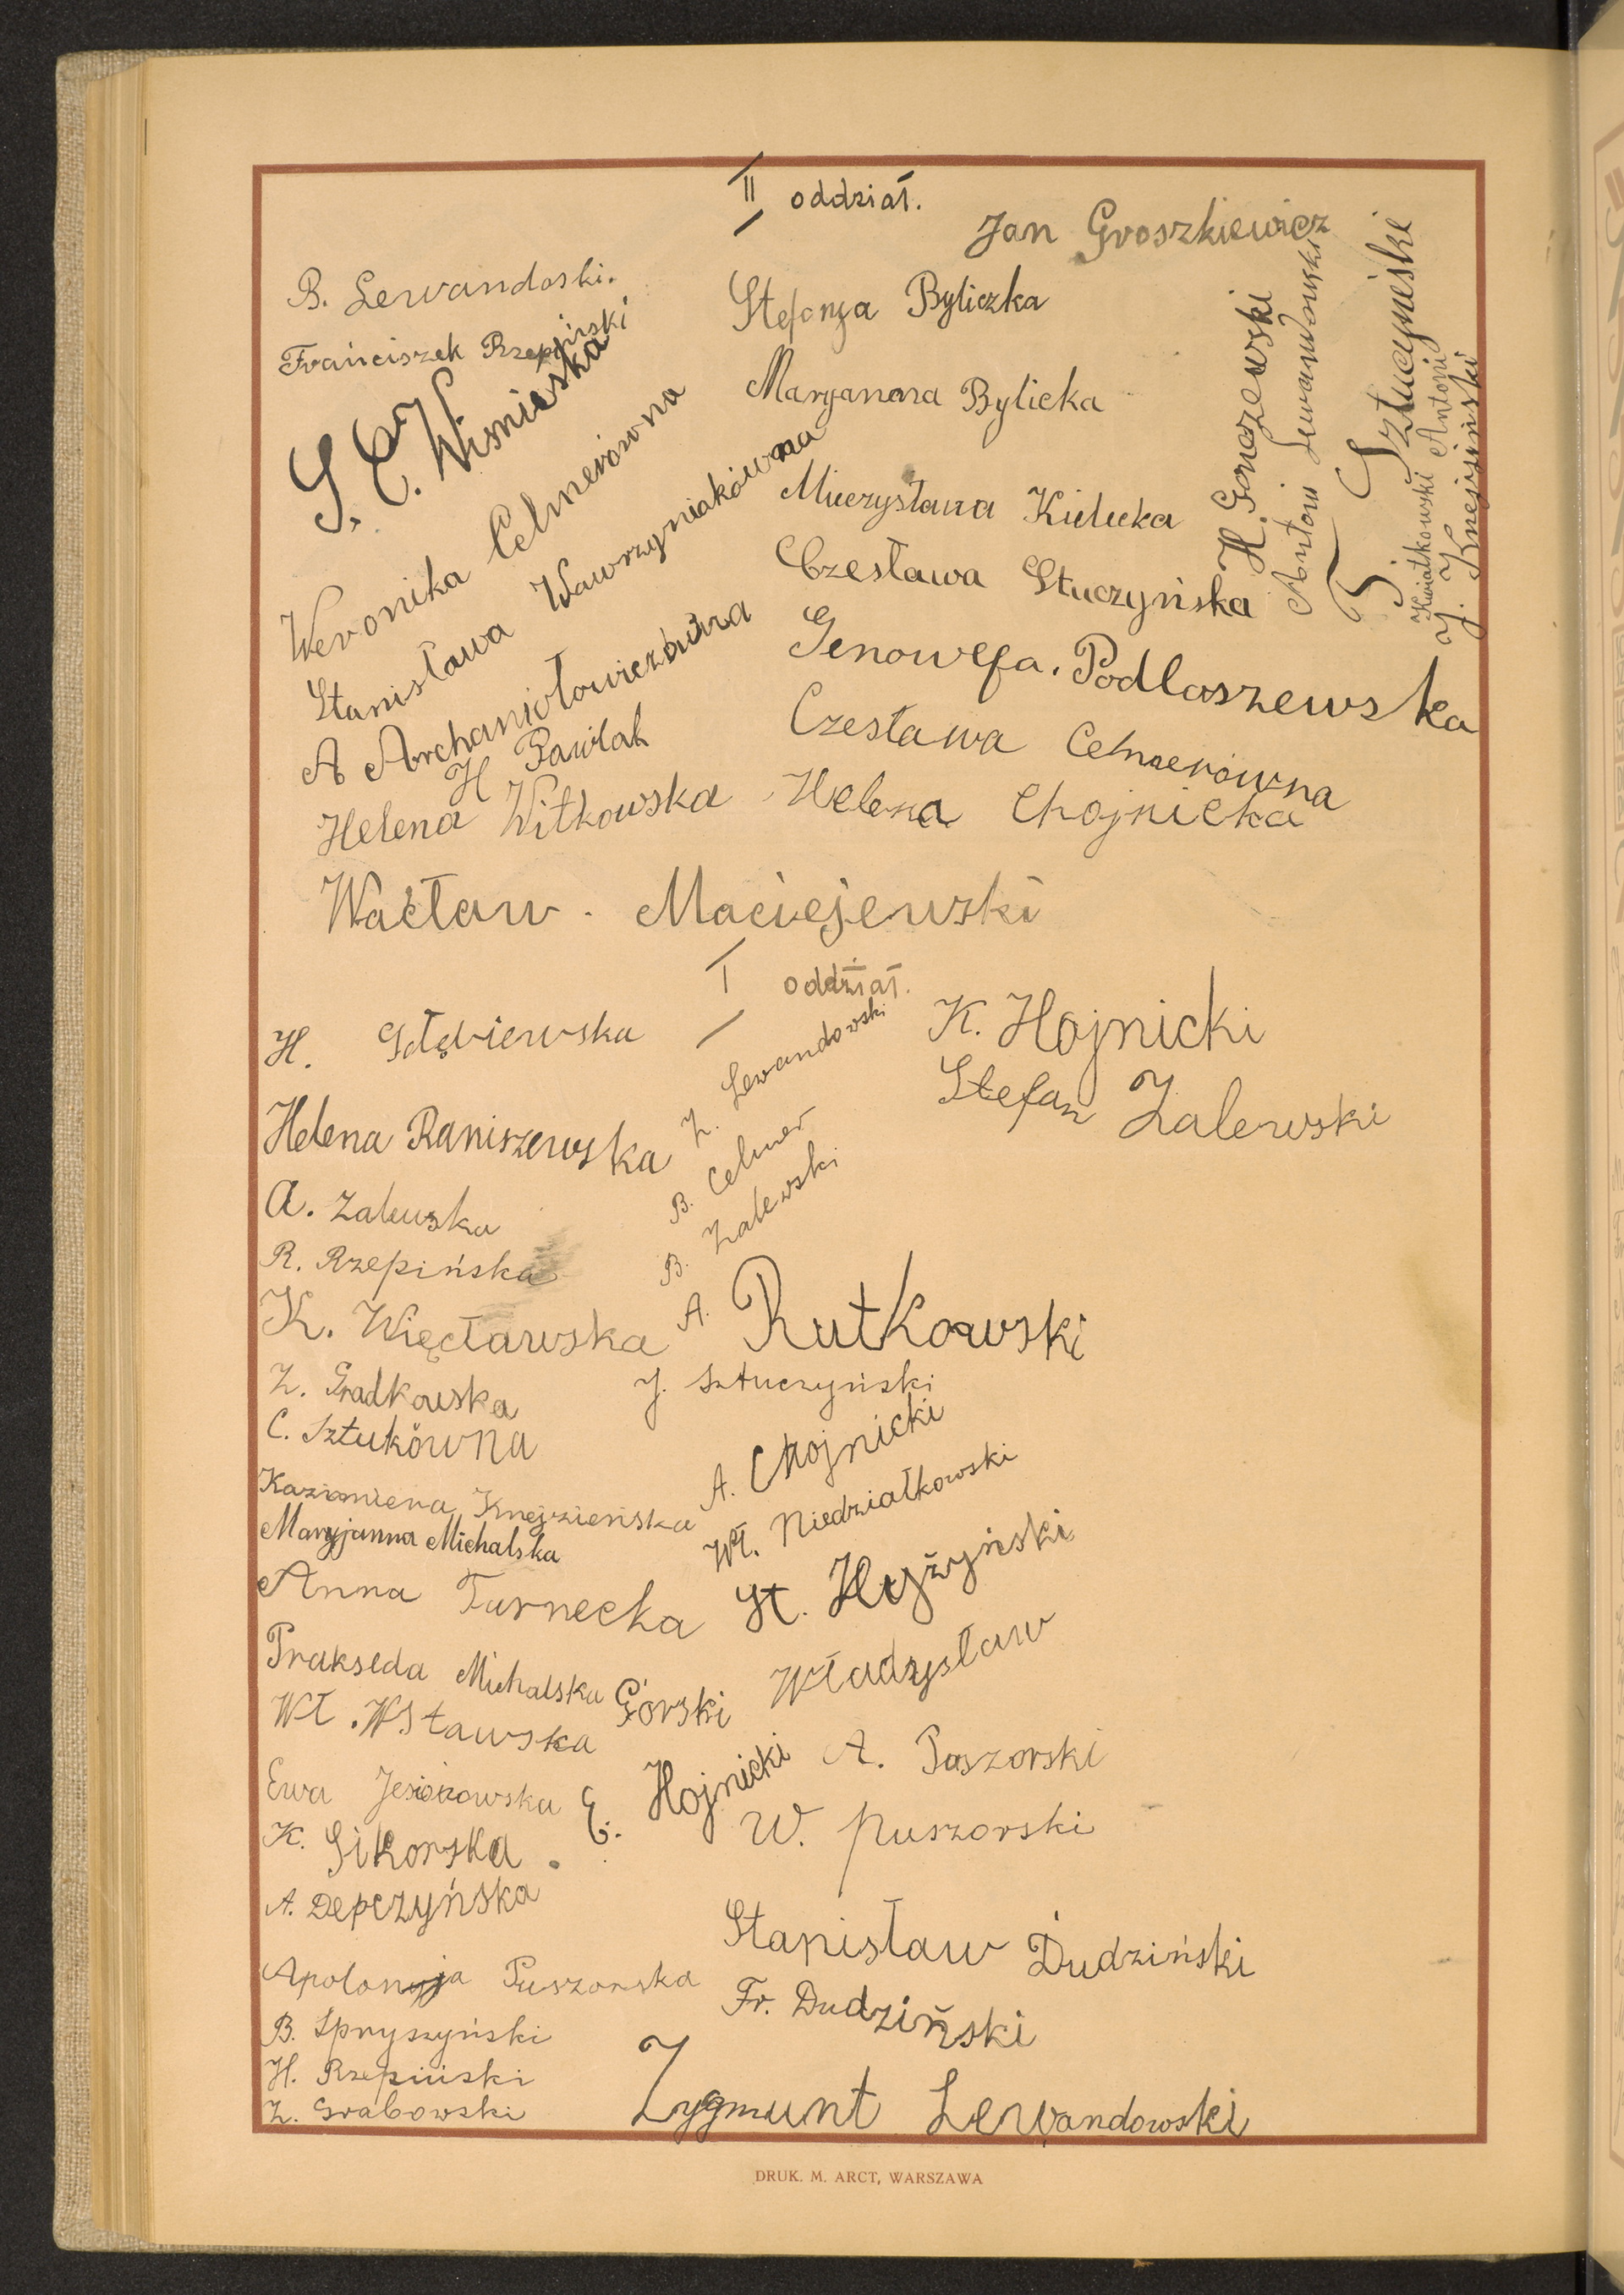 II oddział.
Jan Groszkiewicz
B. Lewandoski.
Franciszek Rzepiński
S. C. Wisnieska
Weronika Celmerówna
Stanisława Wawrzyniakówna
A Archaniołowiczówna
H Pawlak
Helena Witkowska
Stefanja Byliczka
Maryanna Bylicka
Mieczysława Kielicka
Czesława Stuczyńska
Genowefa. Podlaszewska
Czesława Celmerówna
Helena Chojnicka
H. Gonczewski
Antoni Lewandowski
Sztuczyneski
Kwiatkowski Antoni
J. Knejsiński
Wacław. Maciejewski
I oddział.
H. Głębiewska
Helena Raniszewska
A. Zalewska
R. Rzepińska
K. Więcławska
Z. Gradkowska
C. Sztukówna
Kazimiera Knejzieńska
Maryjanna Michalska
Anna Turnecka
Prakseda Michalska
Wł. Wsławska
Ewa Jesionowska
K. Sikorska.
A. Depczyńska
Apolonja Puszorska
B. Spryszyński
H. Rzepiński
Z. Grabowski
Z. Lewandowski
B. Celmer
B. Zalewski
K. Hojnicki
Stefan Zalewski
A. Rutkowski
J. Sztuczyński
A. Chojnicki
Wł. Niedziałkowski
St. Hyżyński
Górski Władzysław
E. Hojnicki
A. Paszorski
W. Puszorski
Stanisław Dudziński
Fr. Dudziński
Zygmunt Lewandowski
DRUK. M. ARCT, WARSZAWA